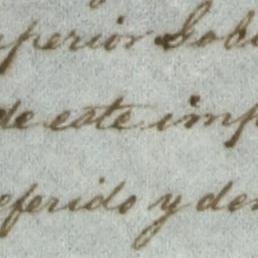 uperior Gobi
de este imp
eferido y den